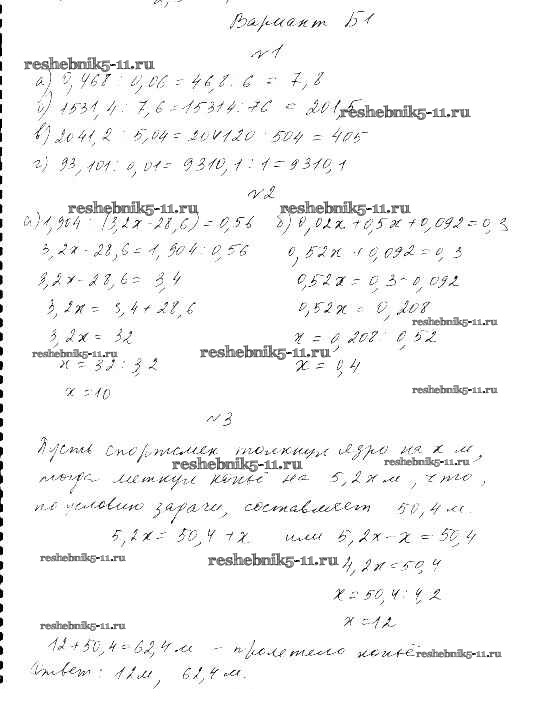 Вариант Б1
№1
reshebnik5-11.ru
а) 0,468 : 0,06 = 46,8 : 6 = 7,8
б) 1531,4 : 7,6 = 15314 : 76 = 201,5
reshebnik5-11.ru
в) 2041,2 : 5,04 = 204120 : 504 = 405
г) 93,101 : 0,01 = 9310,1 : 1 = 9310,1
№2
reshebnik5-11.ru reshebnik5-11.ru
а) 1,904 : (3,2x - 28,6) = 0,56 б) 0,02x + 0,5x + 0,092 = 0,3
3,2x - 28,6 = 1,904 : 0,56 0,52x + 0,092 = 0,3
3,2x - 28,6 = 3,4 0,52x = 0,3 - 0,092
3,2x = 3,4 + 28,6 0,52x = 0,208
reshebnik5-11.ru
3,2x = 32 x = 0,208 : 0,52
reshebnik5-11.ru reshebnik5-11.ru
x = 32 : 3,2 x = 0,4
x = 10 reshebnik5-11.ru
№3
Пусть спортсмен толкнул ядро на x м,
reshebnik5-11.ru reshebnik5-11.ru
тогда метнул копьё на 5,2x м, что,
по условию задачи, составляет 50,4 м.
5,2x = 50,4 + x или 5,2x - x = 50,4
reshebnik5-11.ru reshebnik5-11.ru 4,2x = 50,4
x = 50,4 : 4,2
x = 12
reshebnik5-11.ru
12 + 50,4 = 62,4 м - пролетело копьё
reshebnik5-11.ru
Ответ: 12 м, 62,4 м.